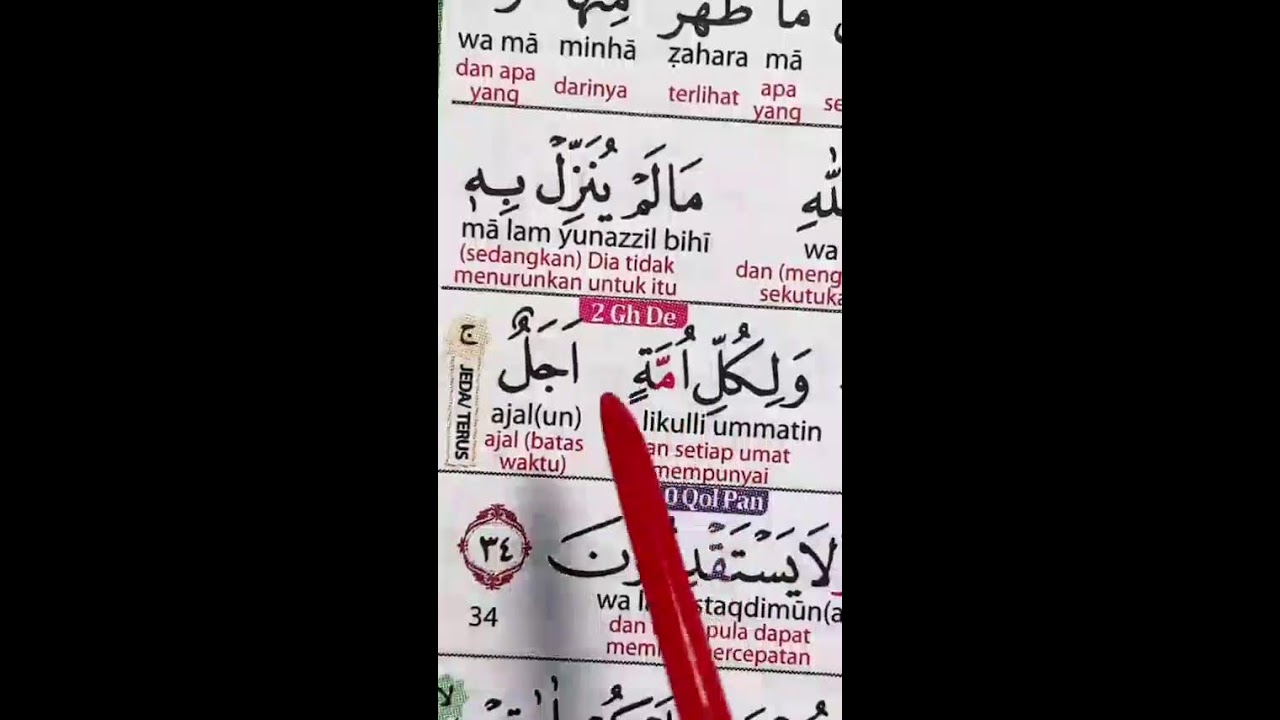 ما ظهر منها و
wa mā minhā ẓahara mā
dan apa yang darinya terlihat apa yang
مَا لَمْ يُنَزِّلْ بِهٖ
mā lam yunazzil bihī wa
(sedangkan) Dia tidak dan (meng
menurunkan untuk itu sekutuka
2 Gh De
وَلِكُلِّ اُمَّةٍ اَجَلٌ
ج JEDA/ TERUS
likulli ummatin ajal(un)
an setiap umat mempunyai
ajal (batas waktu)
0 Qol Pan
لَا يَسْتَقْدِ نَ ٣٤
wa l staqdimūn(a 34
dan pula dapat
mem ercepatan